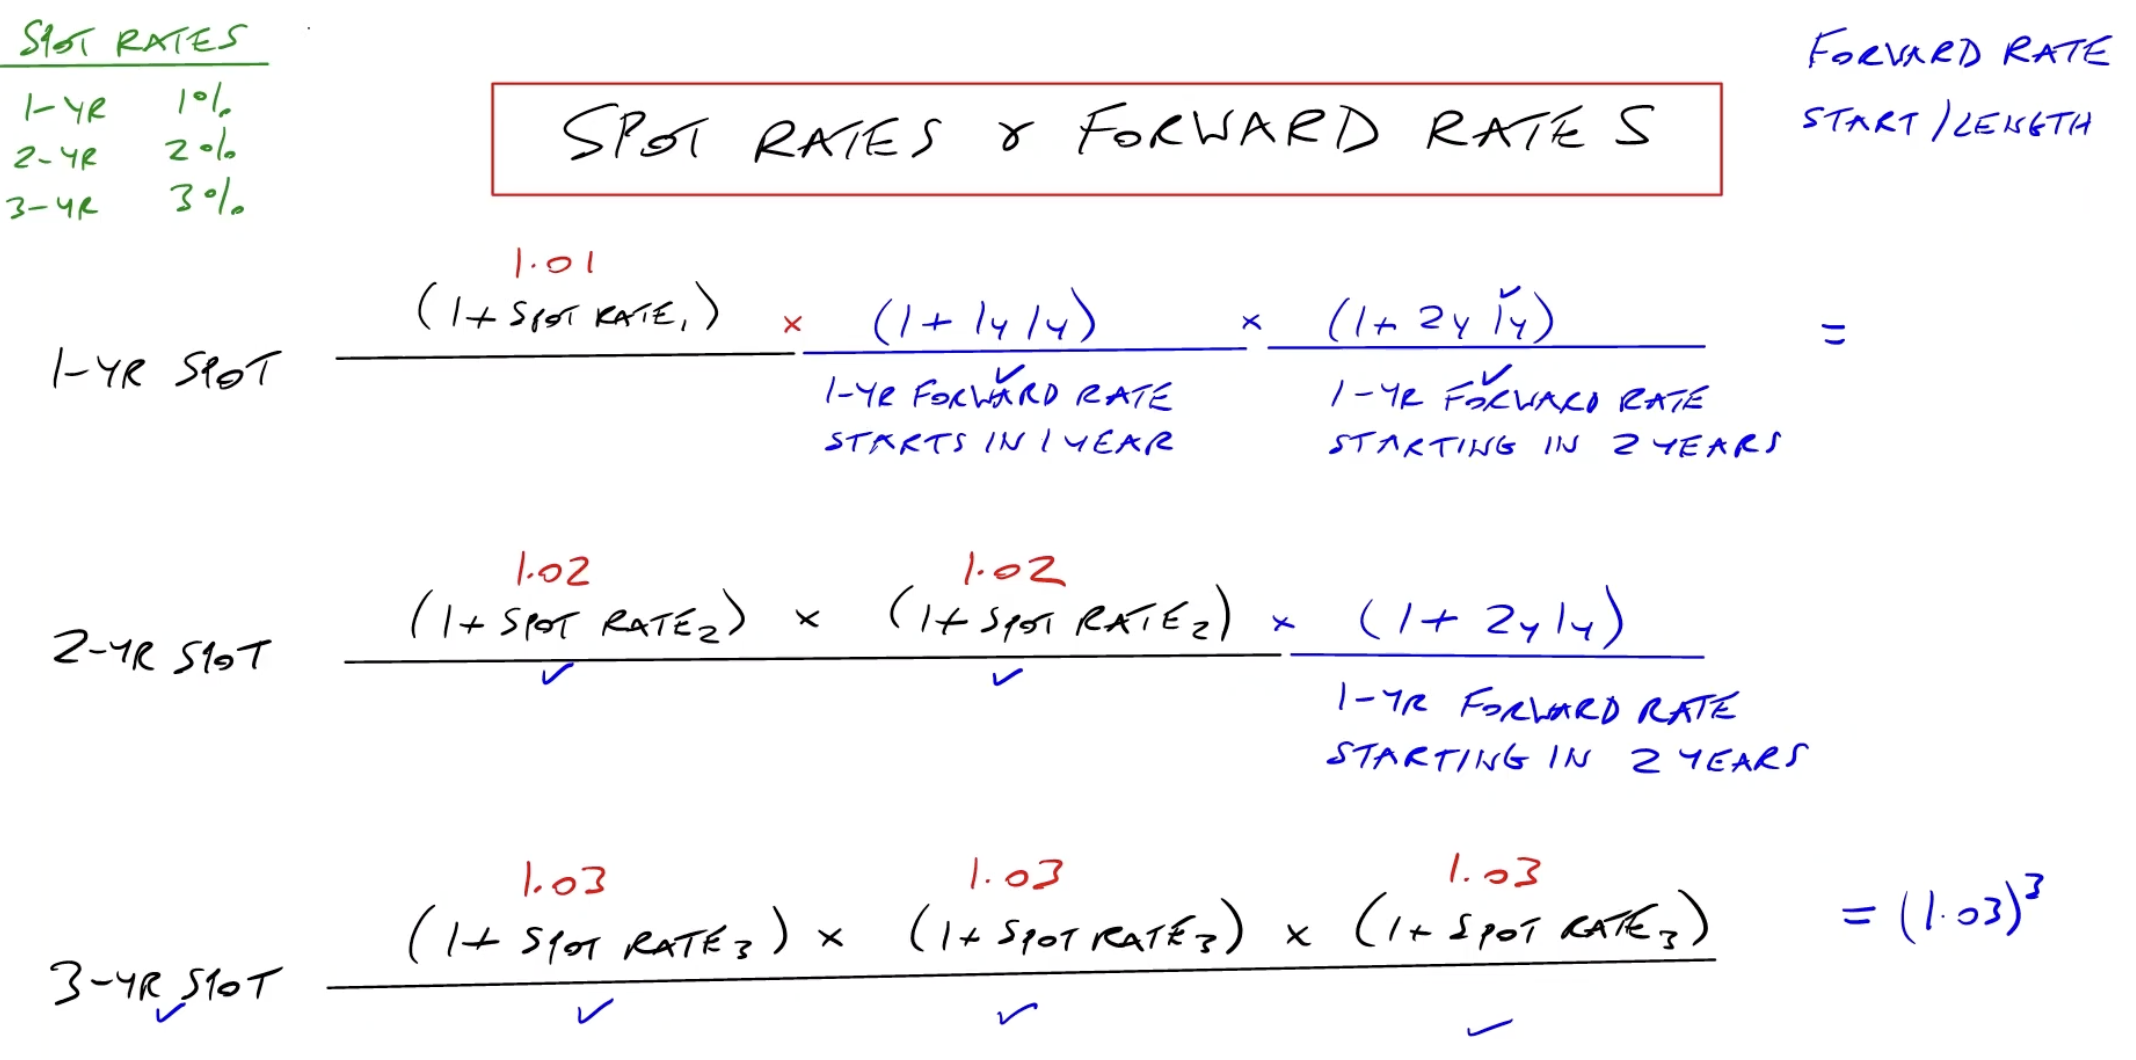 SPOT RATES
1-YR 1%
2-YR 2%
3-YR 3%
SPOT RATES & FORWARD RATES
FORWARD RATE
START/LENGTH
1-YR SPOT
1.01
(1+ SPOT RATE₁) × (1+ 1y1y) × (1+ 2y1y) =
1-YR FORWARD RATE
STARTS IN 1 YEAR
1-YR FORWARD RATE
STARTING IN 2 YEARS
2-YR SPOT
1.02 1.02
(1+ SPOT RATE₂) × (1+ SPOT RATE₂) × (1+ 2y1y)
1-YR FORWARD RATE
STARTING IN 2 YEARS
3-YR SPOT
1.03 1.03 1.03
(1+ SPOT RATE₃) × (1+ SPOT RATE₃) × (1+ SPOT RATE₃) = (1.03)³